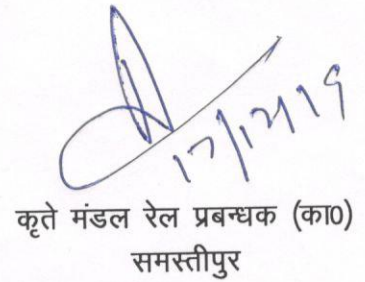 17/12/19
कृते मंडल रेल प्रबन्धक (का0)
समस्तीपुर